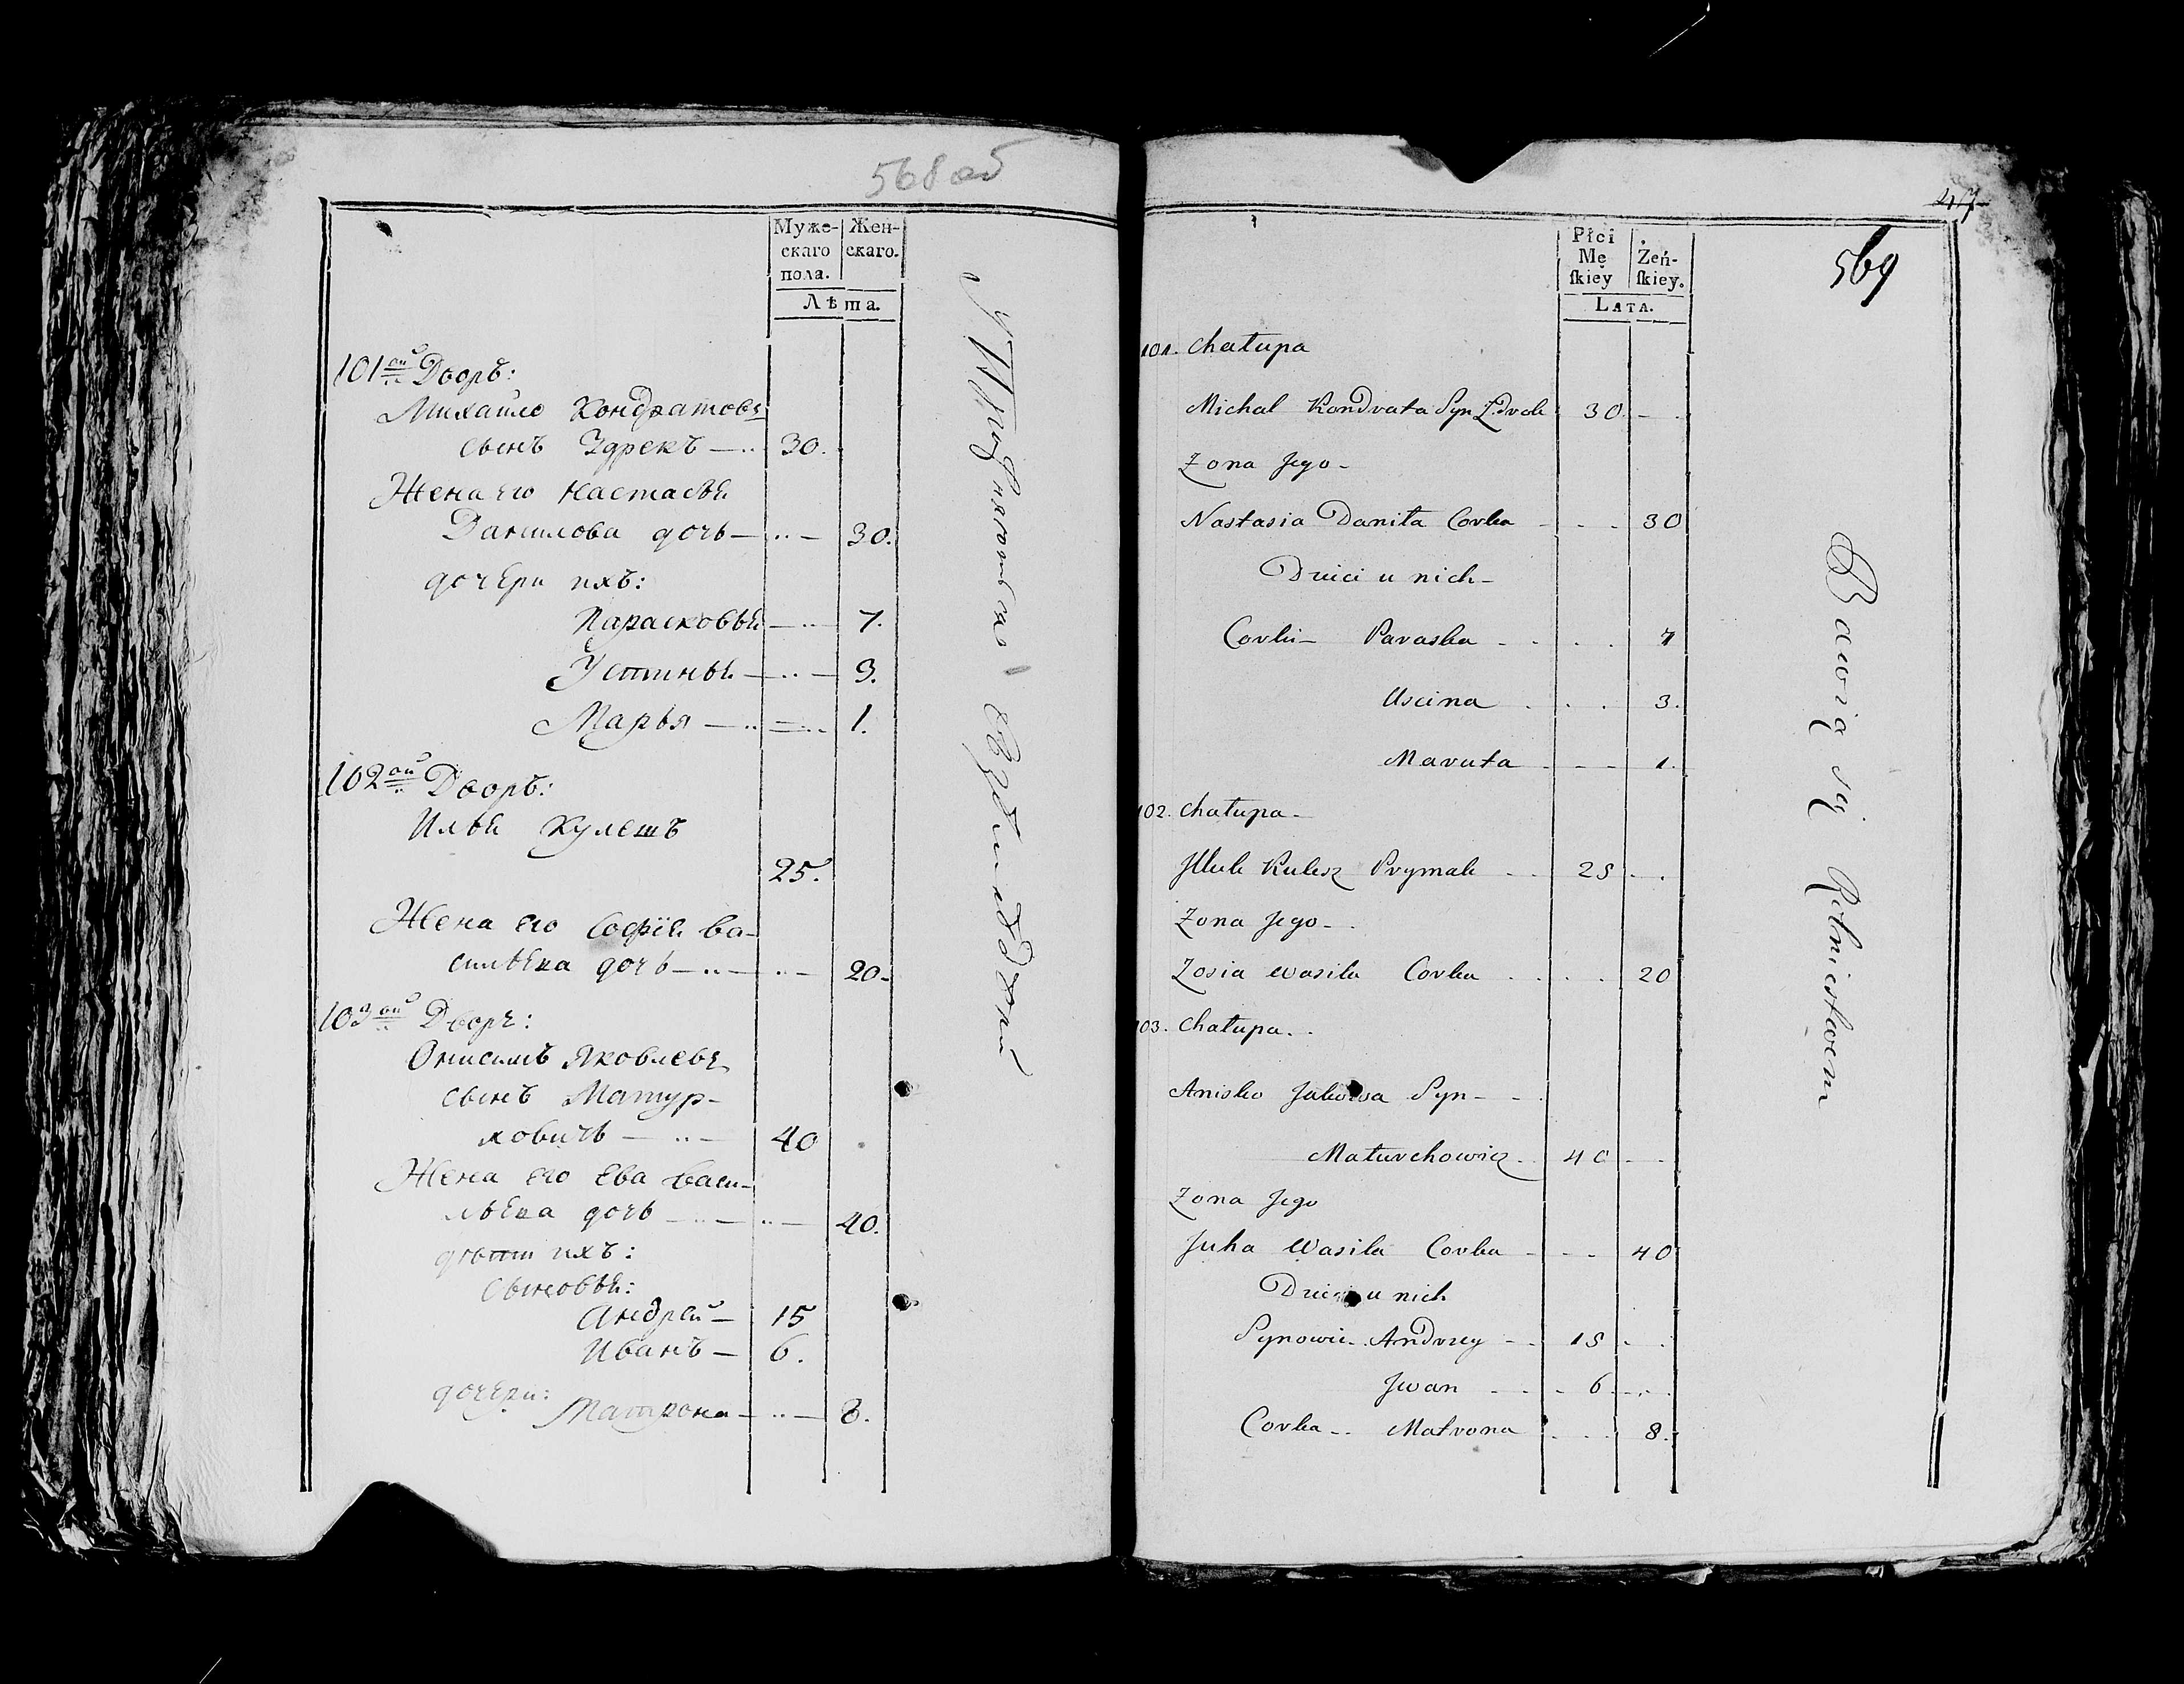 568 об
Муже-
скаго
пола.
Жен-
скаго.
Лѣта.
101ой Дворъ:
Михайло Кондратовъ
сынъ Здрекъ — 30.
Жена его Настасья
Данилова дочь — 30.
дочери ихъ:
Парасковья — 7.
Устинья — 3.
Марья — 1.
102ой Дворъ:
Илья Кулешъ
25.
Жена его Софія Ва-
сильева дочь — 20.
103ой Дворъ:
Онисимъ Яковлевъ
сынъ Матур-
ховичъ — 40
Жена его Ева Васи-
льева дочь — 40.
дѣти ихъ:
сыновья:
Андрей — 15
Иванъ — 6.
дочери:
Матрона — 8.
47
569
Płci
Mę
ſkiey
Żeń-
ſkiey.
Lata.
101. Chałupa
Michal Kondrata Syn Zdrek 30 -
Zona Jego -
Nastasia Daniła Corka - - 30
Dzieci u nich -
Corki - Paraska - - 7
Uscina - - 3.
Maruta - - 1.
102. Chałupa -
Jlluk Kulesz Prymak - 25 -
Zona Jego -
Zosia Wasila Corka - - 20
103. Chałupa -
Anisko Jakowa Syn -
Maturchowicz - 40 -
Zona Jego
Juha Wasila Corka - - 40
Dzieci u nich
Synowie - Andrzey - 15 -
Jwan - 6 -
Corka - Matrona - - 8.
Bawią się Rolnictwem